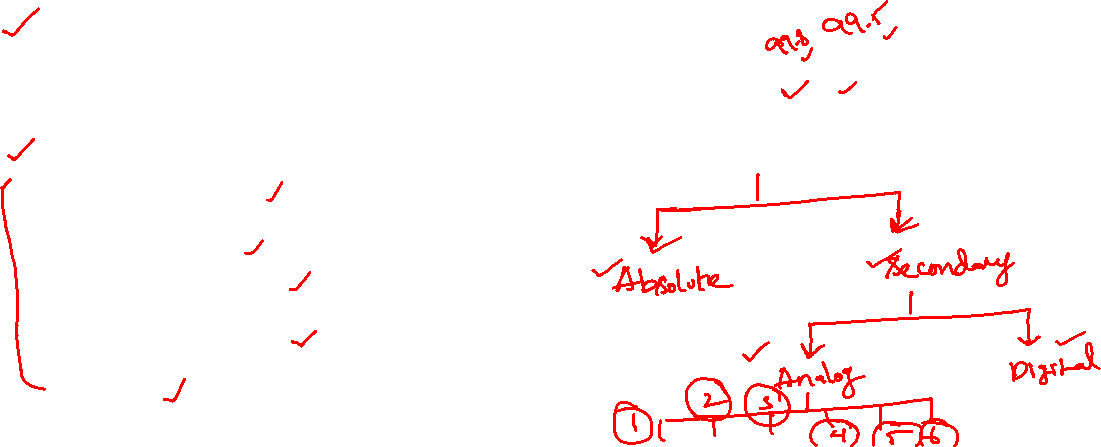 99.8, 99.5,
Absolute Secondary
Analog Digital
1 2 3 4 5 6